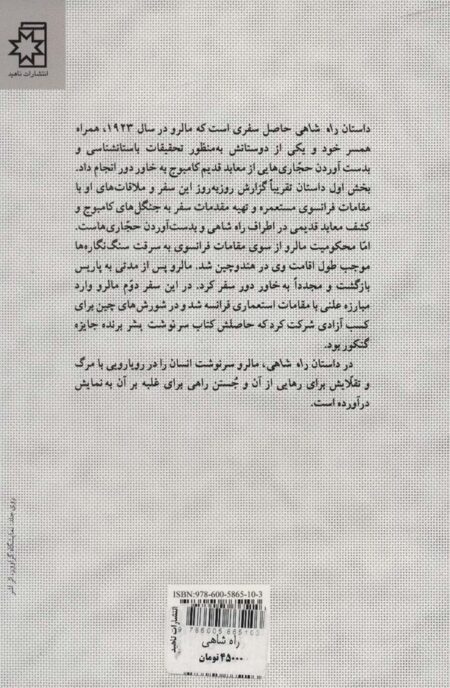 انتشارات ناهید
داستان راه شاهی حاصل سفری است که مالرو در سال ۱۹۲۳، همراه
همسر خود و یکی از دوستانش به‌منظور تحقیقات باستانشناسی و
بدست آوردن حجّاری‌هایی از معابد قدیم کامبوج به خاور دور انجام داد.
بخش اول داستان تقریباً گزارش روزبه‌روز این سفر و ملاقات‌های او با
مقامات فرانسوی مستعمره و تهیه مقدمات سفر به جنگل‌های کامبوج و
کشف معابد قدیمی در اطراف راه شاهی و بدست‌آوردن حجّاری‌هاست.
امّا محکومیت مالرو از سوی مقامات فرانسوی به سرقت سنگ‌نگاره‌ها
موجب طول اقامت وی در هندوچین شد. مالرو پس از مدتی به پاریس
بازگشت و مجدداً به خاور دور سفر کرد. در این سفر دوّم مالرو وارد
مبارزه علنی با مقامات استعماری فرانسه شد و در شورش‌های چین برای
کسب آزادی شرکت کرد که حاصلش کتاب سرنوشت بشر برنده جایزه
گنکور بود.
در داستان راه شاهی، مالرو سرنوشت انسان را در رویارویی با مرگ
و تقلّایش برای رهایی از آن و جُستن راهی برای غلبه بر آن به نمایش
درآورده است.
روی جلد: نمایشگاه گراوور، اثر
ISBN:978-600-5865-10-3
9786005865103
انتشارات ناهید
راه شاهی
۴۵۰۰۰ تومان